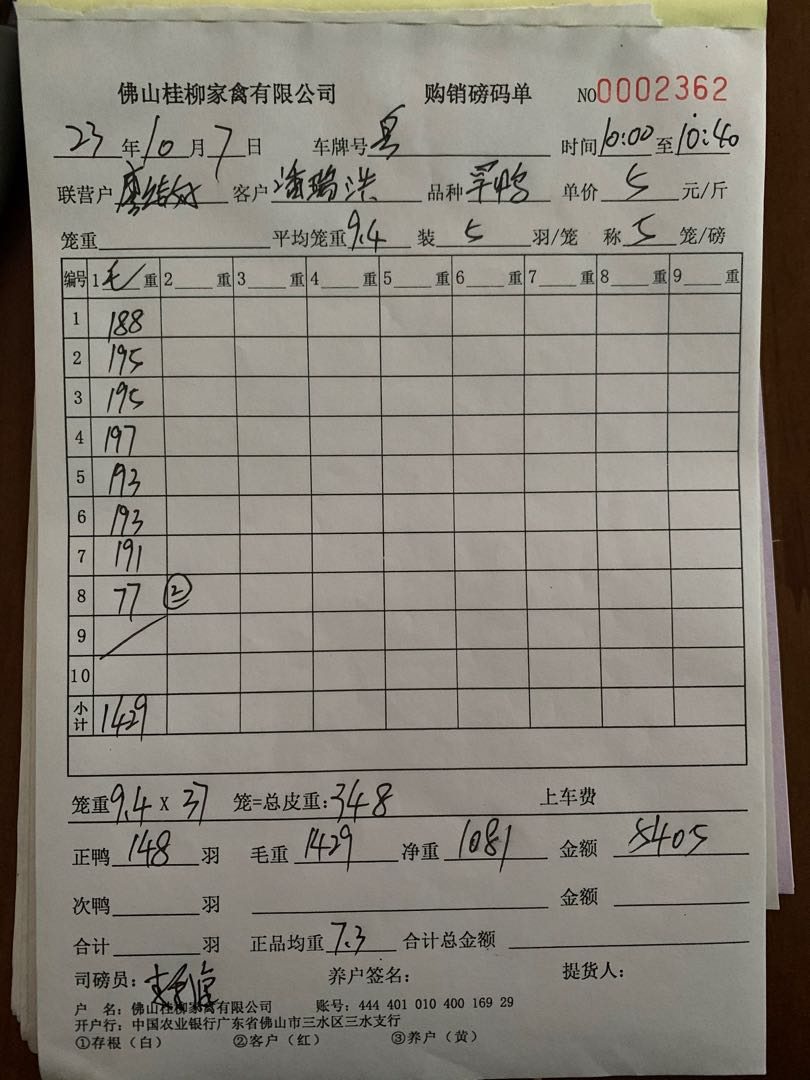 佛山桂柳家禽有限公司 购销磅码单 NO0002362
23年10月7日 车牌号 时间10:00至10:40
联营户 客户潘瑞洪 品种 单价5元/斤
笼重 平均笼重9.4装5羽/笼 称5笼/磅
编号 1毛重 2重 3重 4重 5重 6重 7重 8重 9重
1 188
2 195
3 195
4 197
5 193
6 193
7 191
8 77 ②
9
10
小计 1429
笼重9.4X37笼=总皮重:348 上车费
正鸭148羽 毛重1429净重1081金额5405
次鸭羽 金额
合计羽 正品均重7.3合计总金额
司磅员: 养户签名: 提货人:
户 名: 佛山桂柳家禽有限公司 账号: 444 401 010 400 169 29
开户行: 中国农业银行广东省佛山市三水区三水支行
①存根(白) ②客户(红) ③养户(黄)